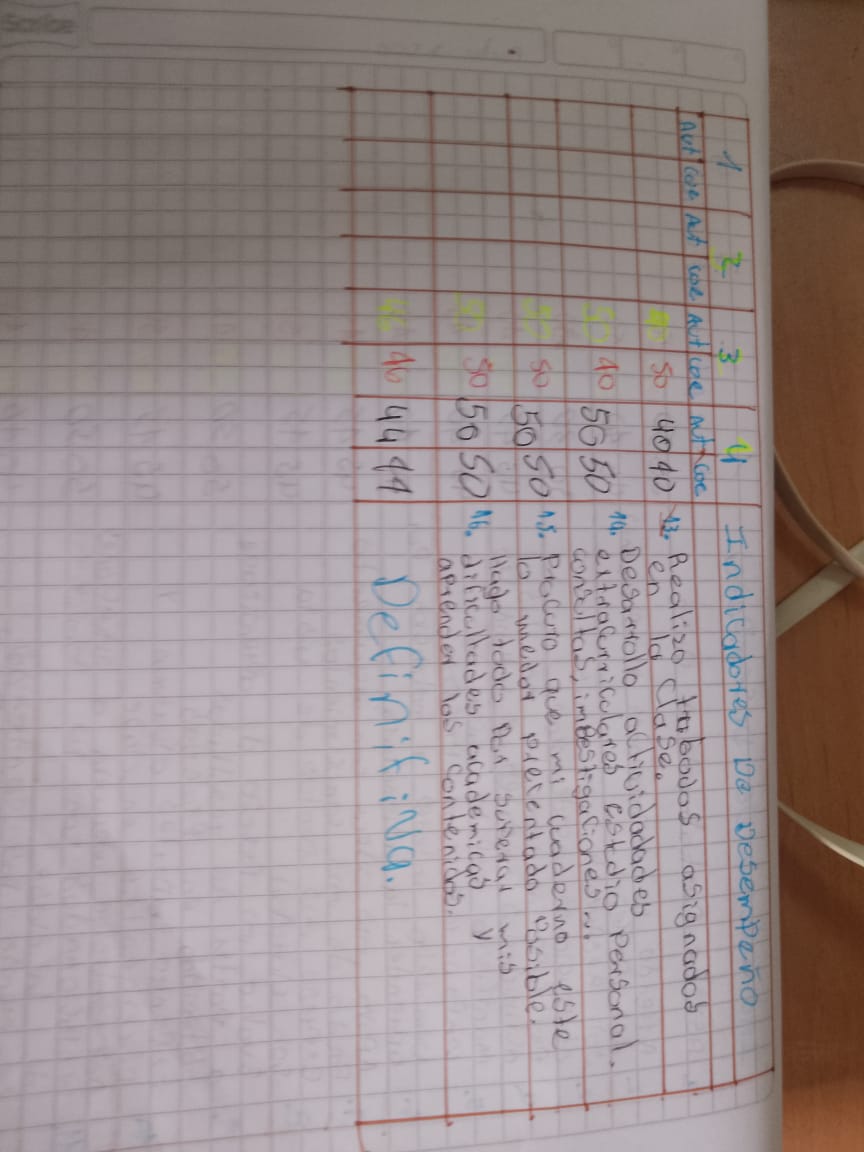 Scribe
1 2 3 4 Indicadores De Desempeño
Aut coe Aut coe Aut coe Aut coe
50 40 40 13. Realizo trabajos asignados
en la clase.
50 40 50 50 14. Desarrollo actividadades
extracurriculares estdio personal.
consultas, investigaciones...
50 50 50 50 15. Procuro que mi cuaderno este
lo mejor precentado posible.
50 50 50 50 16. Hago todo por superar mis
dificultades academicas y
aprender los contenidos.
46 44 Definitiva.